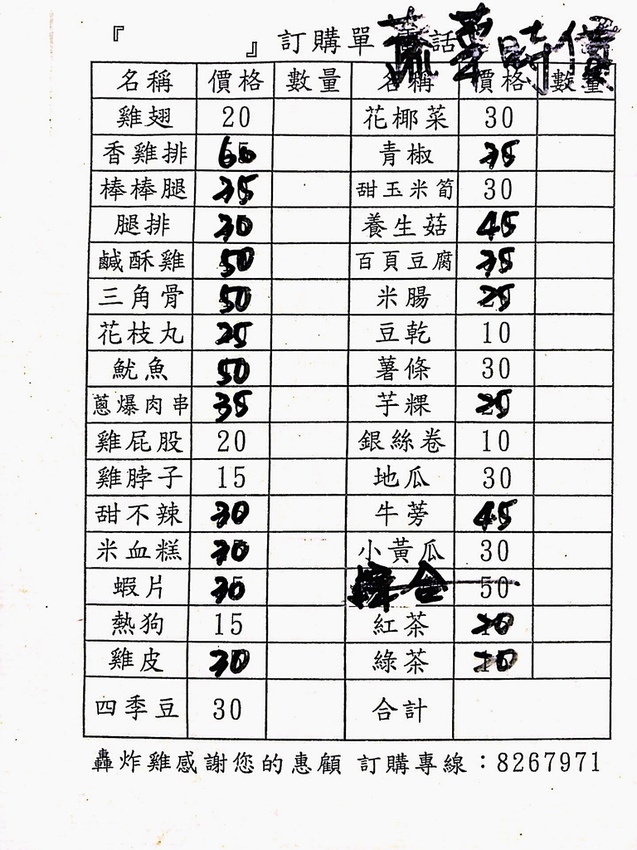 『 』訂購單 話 蔬菜時價
名稱 價格 數量 名稱 價格 數量
雞翅 20 花椰菜 30
香雞排 60 青椒 35
棒棒腿 35 甜玉米筍 30
腿排 30 養生菇 45
鹹酥雞 50 百頁豆腐 35
三角骨 50 米腸 25
花枝丸 25 豆乾 10
魷魚 50 薯條 30
蔥爆肉串 35 芋粿 25
雞屁股 20 銀絲卷 10
雞脖子 15 地瓜 30
甜不辣 30 牛蒡 45
米血糕 30 小黃瓜 30
蝦片 30 50
熱狗 15 紅茶 20
雞皮 30 綠茶 20
四季豆 30 合計
轟炸雞感謝您的惠顧 訂購專線：8267971